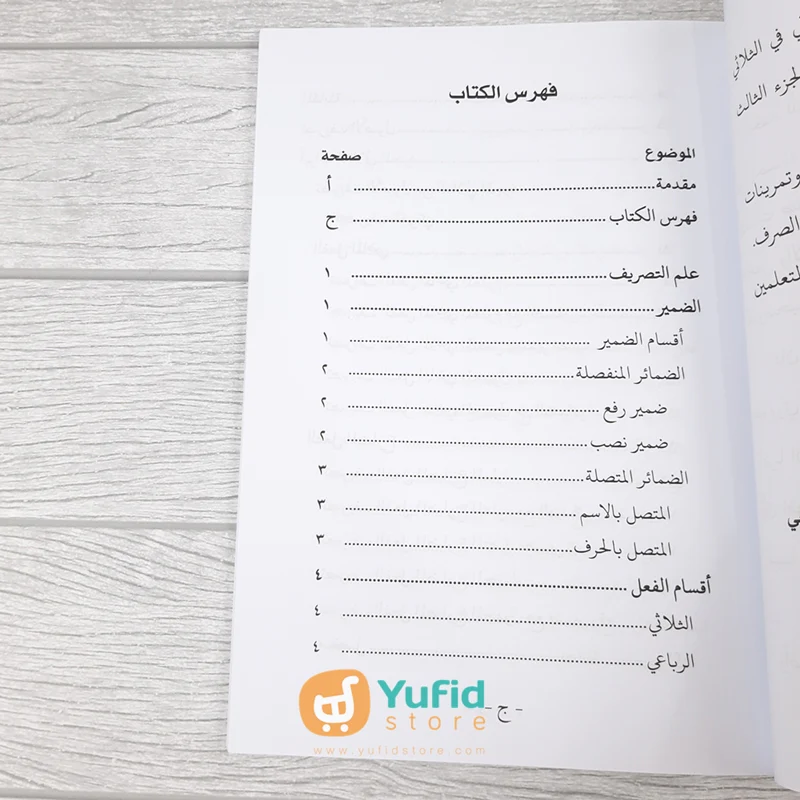 فهرس الكتاب
الموضوع صفحة
مقدمة أ
فهرس الكتاب ج
علم التصريف ١
الضمير ١
أقسام الضمير ١
الضمائر المنفصلة ٢
ضمير رفع ٢
ضمير نصب ٢
الضمائر المتصلة ٣
المتصل بالاسم ٣
المتصل بالحرف ٣
أقسام الفعل ٤
الثلاثي ٤
الرباعي ٤
- ج -
في الثلاثي
الجزء الثالث
وتمرينات
الصرف.
Yufid
store
www.yufidstore.com